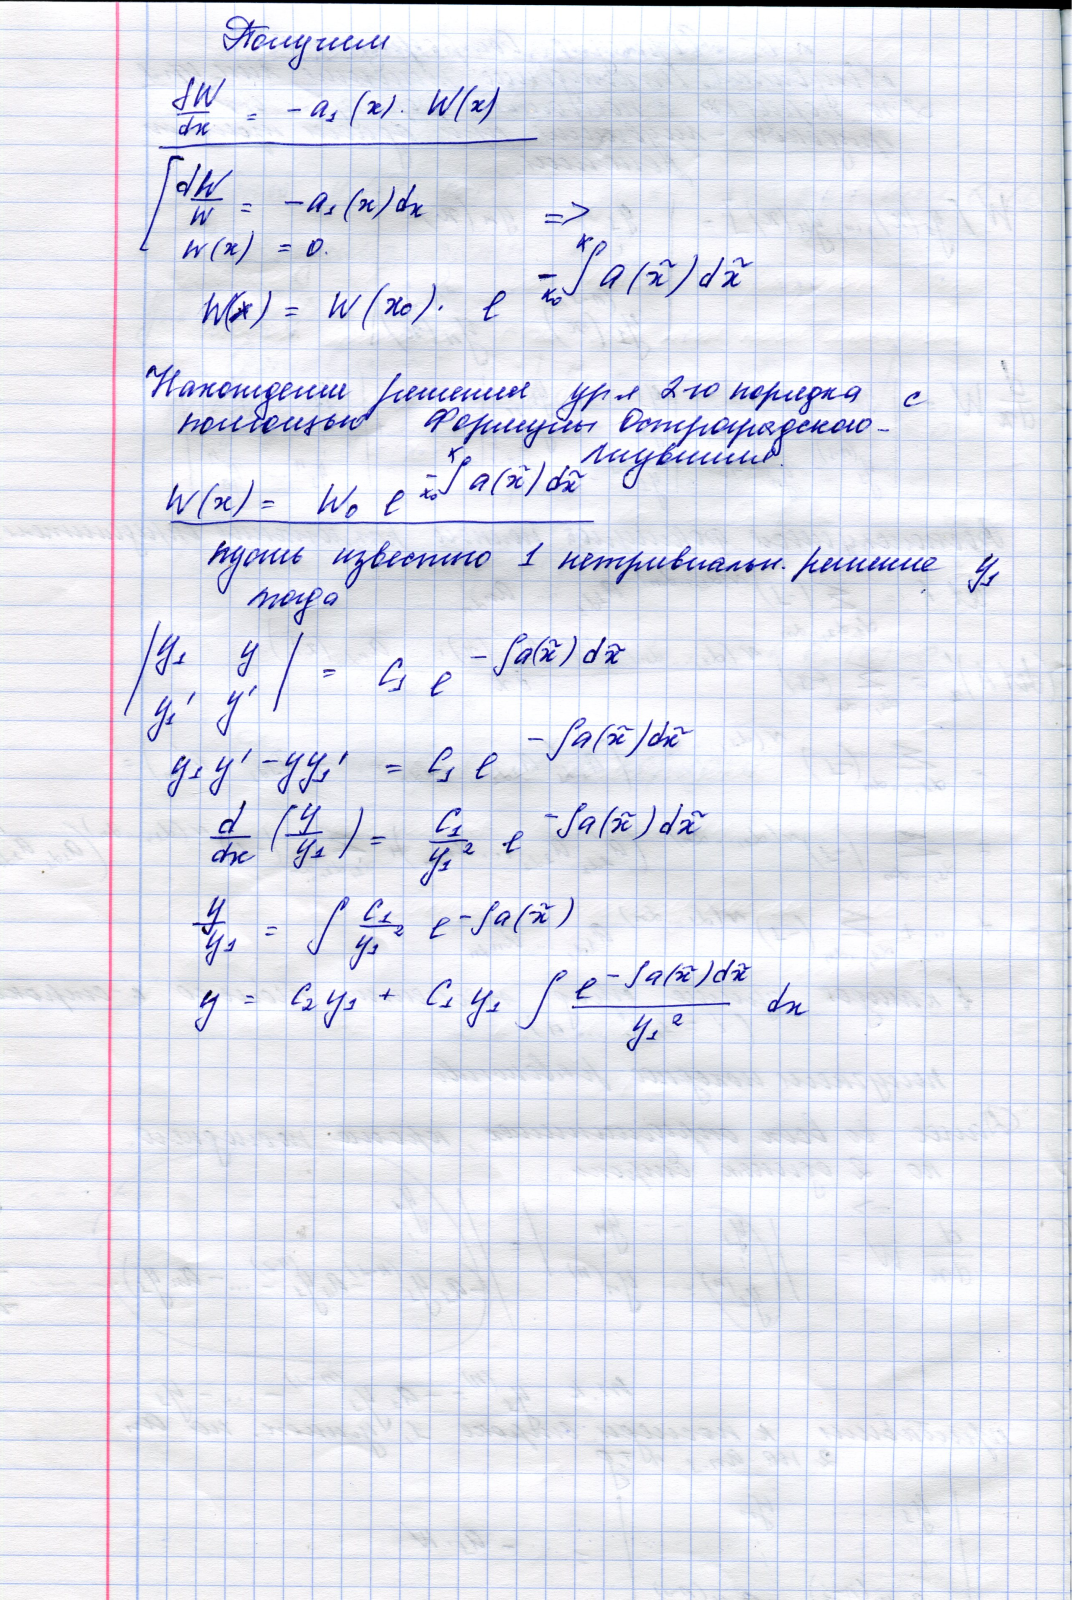 Получим
dW/dx = -a₁(x)·W(x)
[ dW/W = -a₁(x)dx =>
W(x) = 0.
W(x) = W(x₀)· e^{-∫_{x₀}^{x} a(x̃)dx̃}
Нахождении решения ур-я 2-го порядка с
помощью Формулы Остроградского-
Лиувилля.
W(x) = W₀ e^{-∫_{x₀}^{x} a(x̃)dx̃}
пусть известно 1 нетривиальн. решение y₁
тогда
| y₁ y |
| y₁' y' | = C₁ e^{-∫a(x̃)dx̃}
y₁y' - yy₁' = C₁ e^{-∫a(x̃)dx̃}
d/dx (y/y₁) = C₁/y₁² e^{-∫a(x̃)dx̃}
y/y₁ = ∫ C₁/y₁² e^{-∫a(x̃)}
y = C₂y₁ + C₁y₁ ∫ e^{-∫a(x̃)dx̃}/y₁² dx